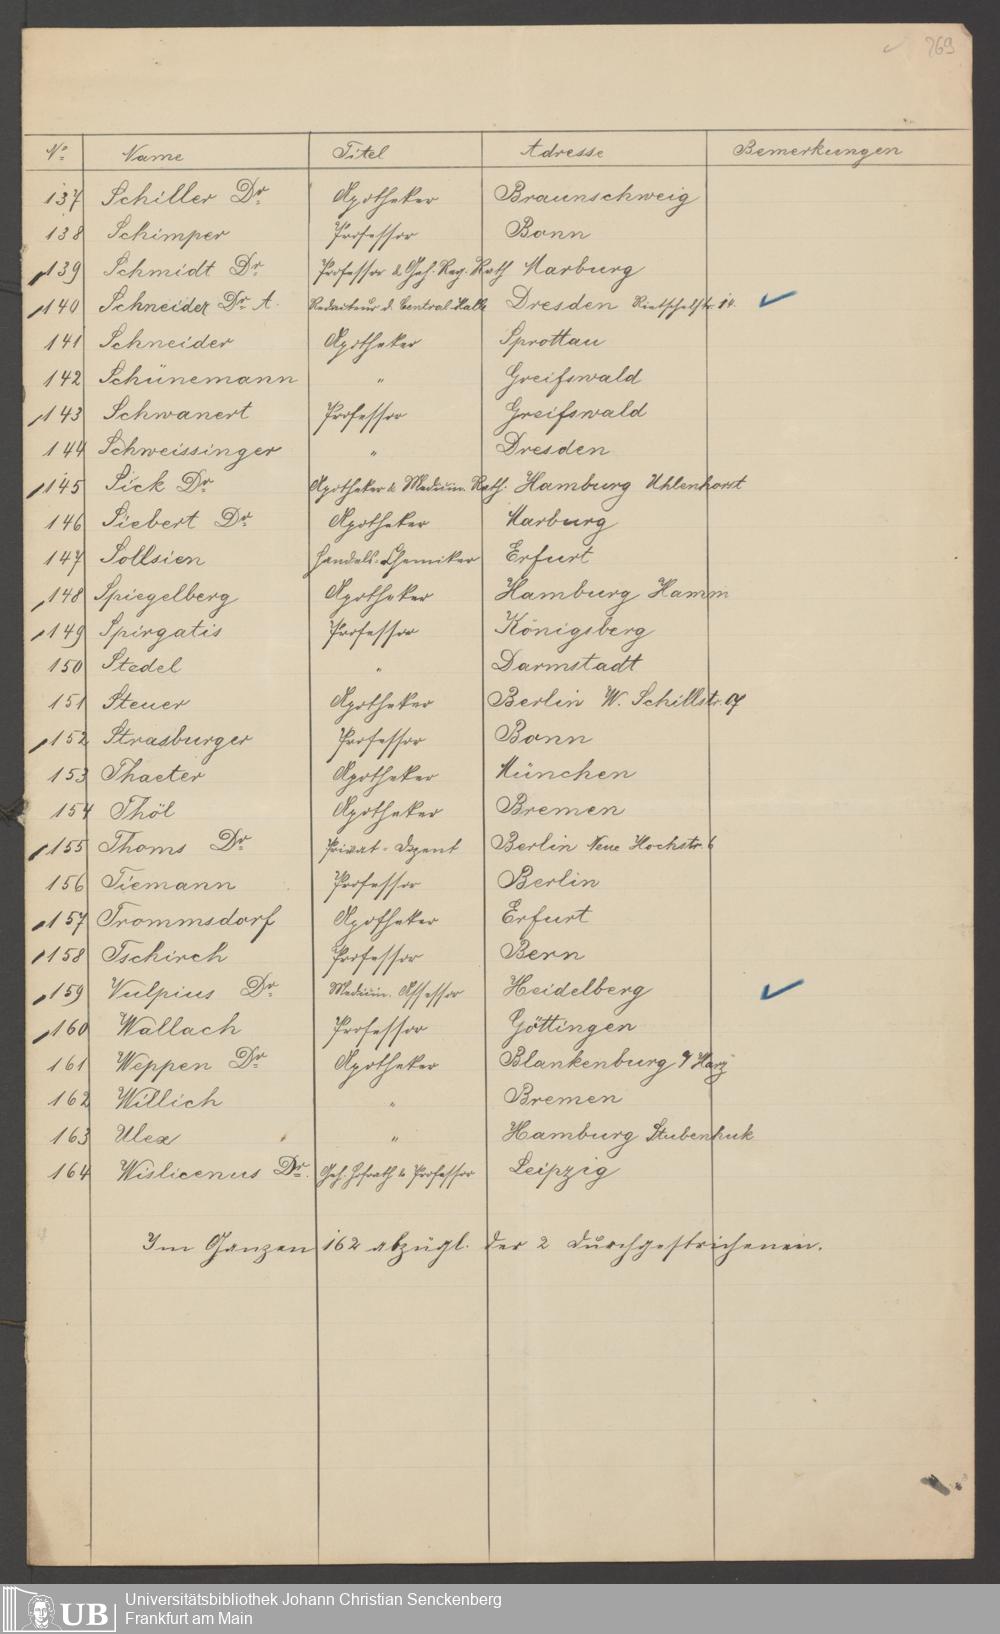 769
No. Name Titel Adresse Bemerkungen
137 Schiller Dr. Apotheker Braunschweig
138 Schimper Professor Bonn
139 Schmidt Dr. Professor & Geh. Reg. Rath Marburg
140 Schneider Dr. A. Redacteur d. Central-Halle Dresden Rietschelstr. 14.
141 Schneider Apotheker Sprottau
142 Schünemann " Greifswald
143 Schwanert Professor Greifswald
144 Schweissinger " Dresden
145 Sick Dr. Apotheker & Medicin. Rath. Hamburg Uhlenhorst
146 Siebert Dr. Apotheker Marburg
147 Sollsien Handels-Chemiker Erfurt
148 Spiegelberg Apotheker Hamburg Hamm
149 Spirgatis Professor Königsberg
150 Stedel " Darmstadt
151 Steuer Apotheker Berlin W. Schillstr.
152 Strasburger Professor Bonn
153 Thaeter Apotheker München
154 Thöl Apotheker Bremen
155 Thoms Dr. Privat-Dozent Berlin Neue Hochstr. 6
156 Tiemann Professor Berlin
157 Trommsdorf Apotheker Erfurt
158 Tschirch Professor Bern
159 Vulpius Dr. Medicin. Assessor Heidelberg
160 Wallach Professor Göttingen
161 Weppen Dr. Apotheker Blankenburg Harz
162 Willich " Bremen
163 Ulex " Hamburg Stubenhuk
164 Wislicenus Dr. Geh. Hofrath & Professor Leipzig
Im Ganzen 162 abzügl. der 2 durchgestrichenen.
UB Universitätsbibliothek Johann Christian Senckenberg
Frankfurt am Main